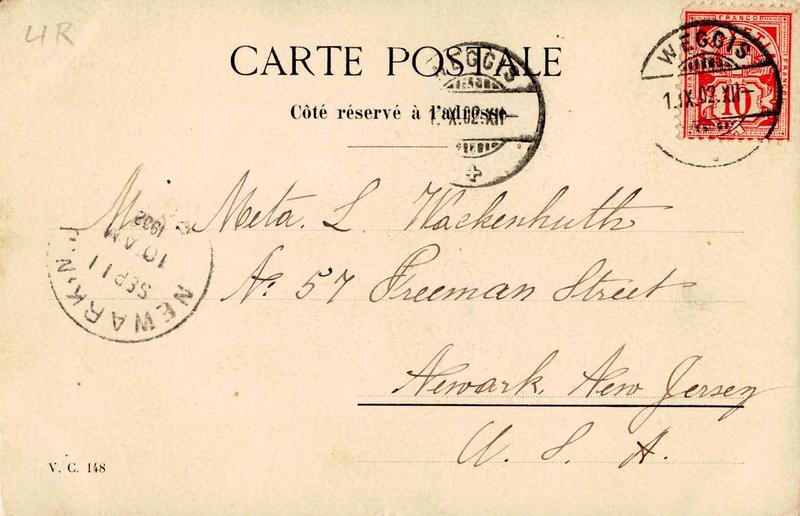 4R
CARTE POSTALE
Côté réservé à l'adresse
WEGGIS
1.IX.02.XII—
FRANCO
10
WEGGIS
1.IX.02.XII—
Miss Meta. L. Wackenhuth
No 57 Freeman Street
Newark, New Jersey
U. S. A.
NEWARK, N.J.
SEP 11
10 AM
V. C. 148